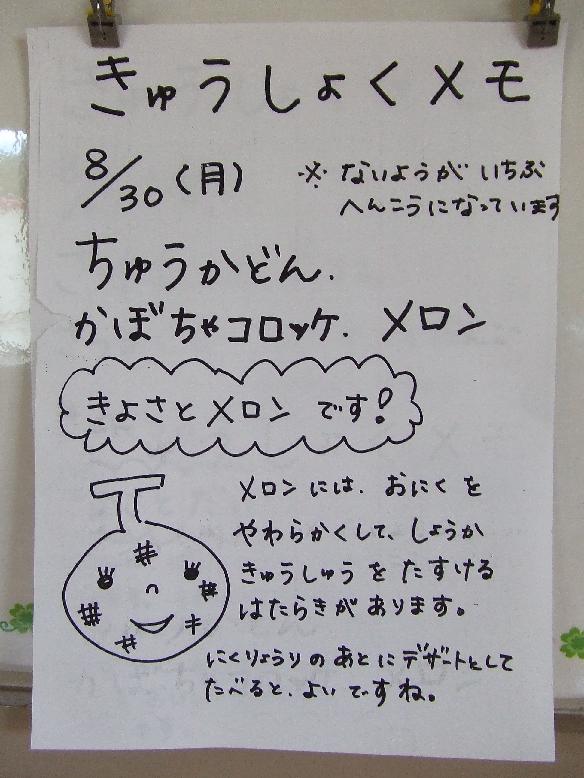 きゅうしょくメモ
8/30(月)
※ないようがいちぶ
へんこうになっています
ちゅうかどん.
かぼちゃコロッケ. メロン
きよさとメロンです!
メロンには、おにくを
やわらかくして、しょうか
きゅうしゅうをたすける
はたらきがあります。
にくりょうりのあとにデザートとして
たべると、よいですね。